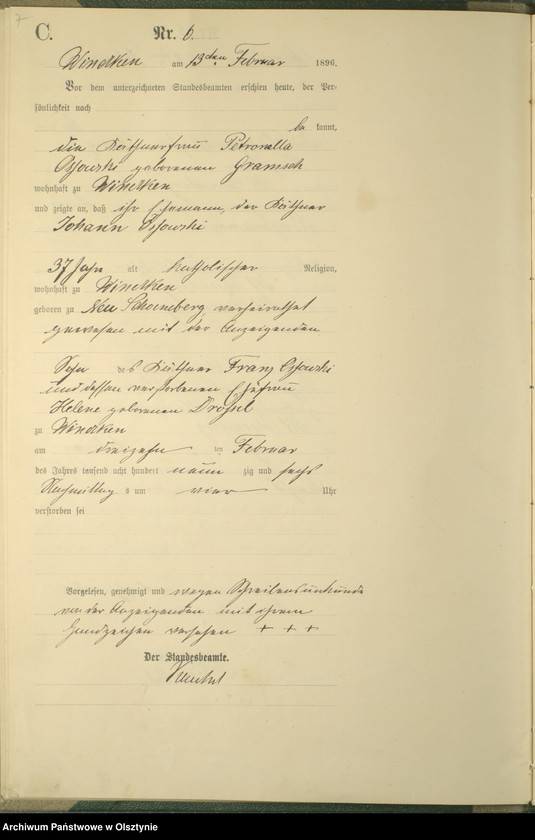 7
C. Nr. 6.
Windtken am 13ten Februar 1896.
Vor dem unterzeichneten Standesbeamten erschien heute, der Per-
sönlichkeit nach
be kannt,
die Käthnerfrau Petronella
Ossowski geborenen Gramsch
wohnhaft zu Windtken
und zeigte an, daß ihr Ehemann, der Käthner
Johann Ossowski
37 Jahr alt katholischer Religion,
wohnhaft zu Windtken
geboren zu Neu Schoeneberg, verheirathet
gewesen mit der Anzeigenden
Sohn des Käthner Franz Ossowski
und dessen verstorbenen Ehefrau
Helene geborenen
zu Windtken
am dreizehn ten Februar
des Jahres tausend acht hundert neun zig und sechs
Nachmittag s um vier Uhr
verstorben sei
Vorgelesen, genehmigt und wegen Schreibensunkunde
von der Anzeigenden mit ihrem
Handzeichen versehen + + +
Der Standesbeamte.
Archiwum Państwowe w Olsztynie